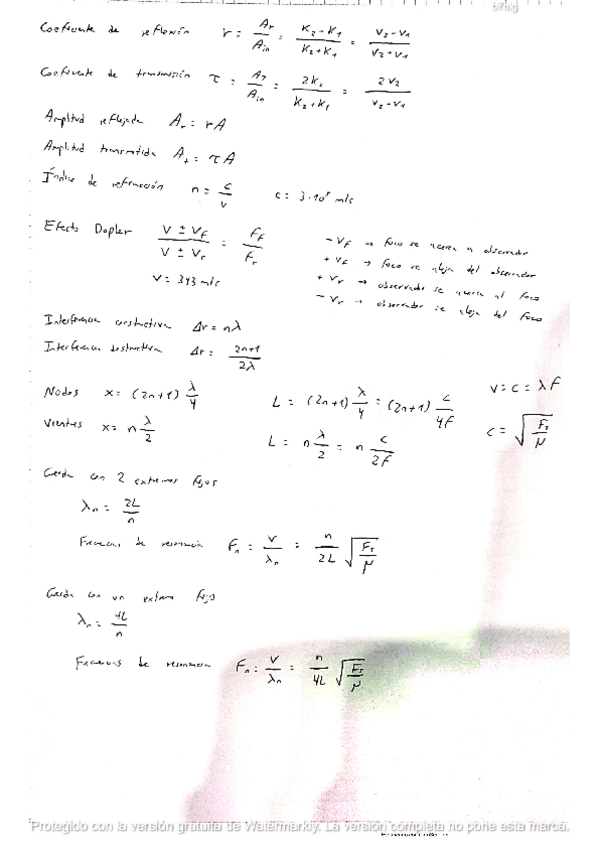 b7big
Coeficiente de reflexión r = Ar/Ain = (K2 - K1)/(K2 + K1) = (V2 - V1)/(V2 + V1)
Coeficiente de transmisión τ = AT/Ain = 2K2/(K2 + K1) = 2V2/(V2 - V1)
Amplitud reflejada Ar = rA
Amplitud transmitida At = τA
Índice de refracción n = c/v c = 3·10⁸ m/s
Efecto Dopler (V ± VF)/(V ± Vr) = FF/Fr
V = 343 m/s
- VF → foco se acerca a observador
+ VF → foco se aleja del observador
+ Vr → observador se acerca al foco
- Vr → observador se aleja del foco
Interferencia constructiva Δr = nλ
Interferencia destructiva Δr = (2n+1)/2λ
Nodos x = (2n+1) λ/4 L = (2n+1) λ/4 = (2n+1) c/4F V = c = λF
Vientres x = n λ/2 L = n λ/2 = n c/2F c = √(FT/μ)
Cuerda con 2 extremos fijos
λn = 2L/n
Frecuencias de resonancia Fn = V/λn = n/2L √(FT/μ)
Cuerda con un extremo fijo
λn = 4L/n
Frecuencias de resonancia Fn = V/λn = n/4L √(FT/μ)
Protegido con la versión gratuita de Watermarkly. La versión completa no pone esta marca.